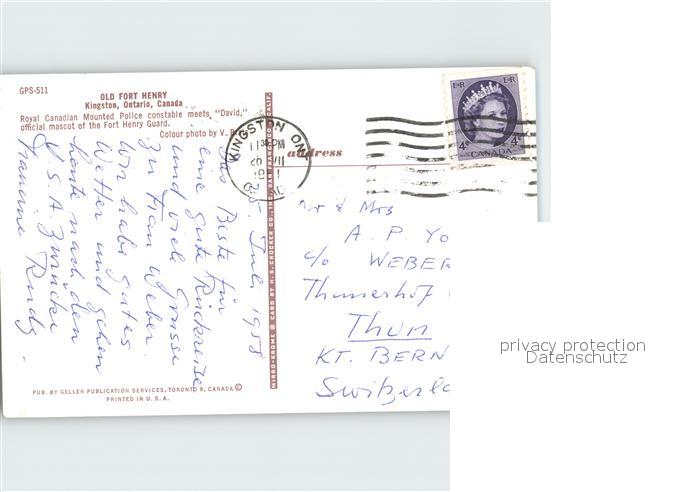 GPS-511
OLD FORT HENRY
Kingston, Ontario, Canada
Royal Canadian Mounted Police constable meets "David,"
official mascot of the Fort Henry Guard.
Colour photo by V.
25. Juli 1958
Das Beste für
eine gute Rückreise
und viele Grüsse
zu Frau Weber.
Wir habe gutes
Wetter und gehen
heute nach den
U.S.A. zurück
Rudy
PUB. BY GELLER PUBLICATION SERVICES, TORONTO 9, CANADA ©
PRINTED IN U. S. A.
MIRRO-KROME ® CARD BY H. S. CROCKER CO., INC., SAN FRANCISCO, CALIF.
KINGSTON ONT
PM
VII
address
E R E R
4¢ 4¢
CANADA
Mr & Mrs
A. P. Yo
c/o WEBER
Thunerhof
Thun
KT. BERN
Switzerla
privacy protection
Datenschutz